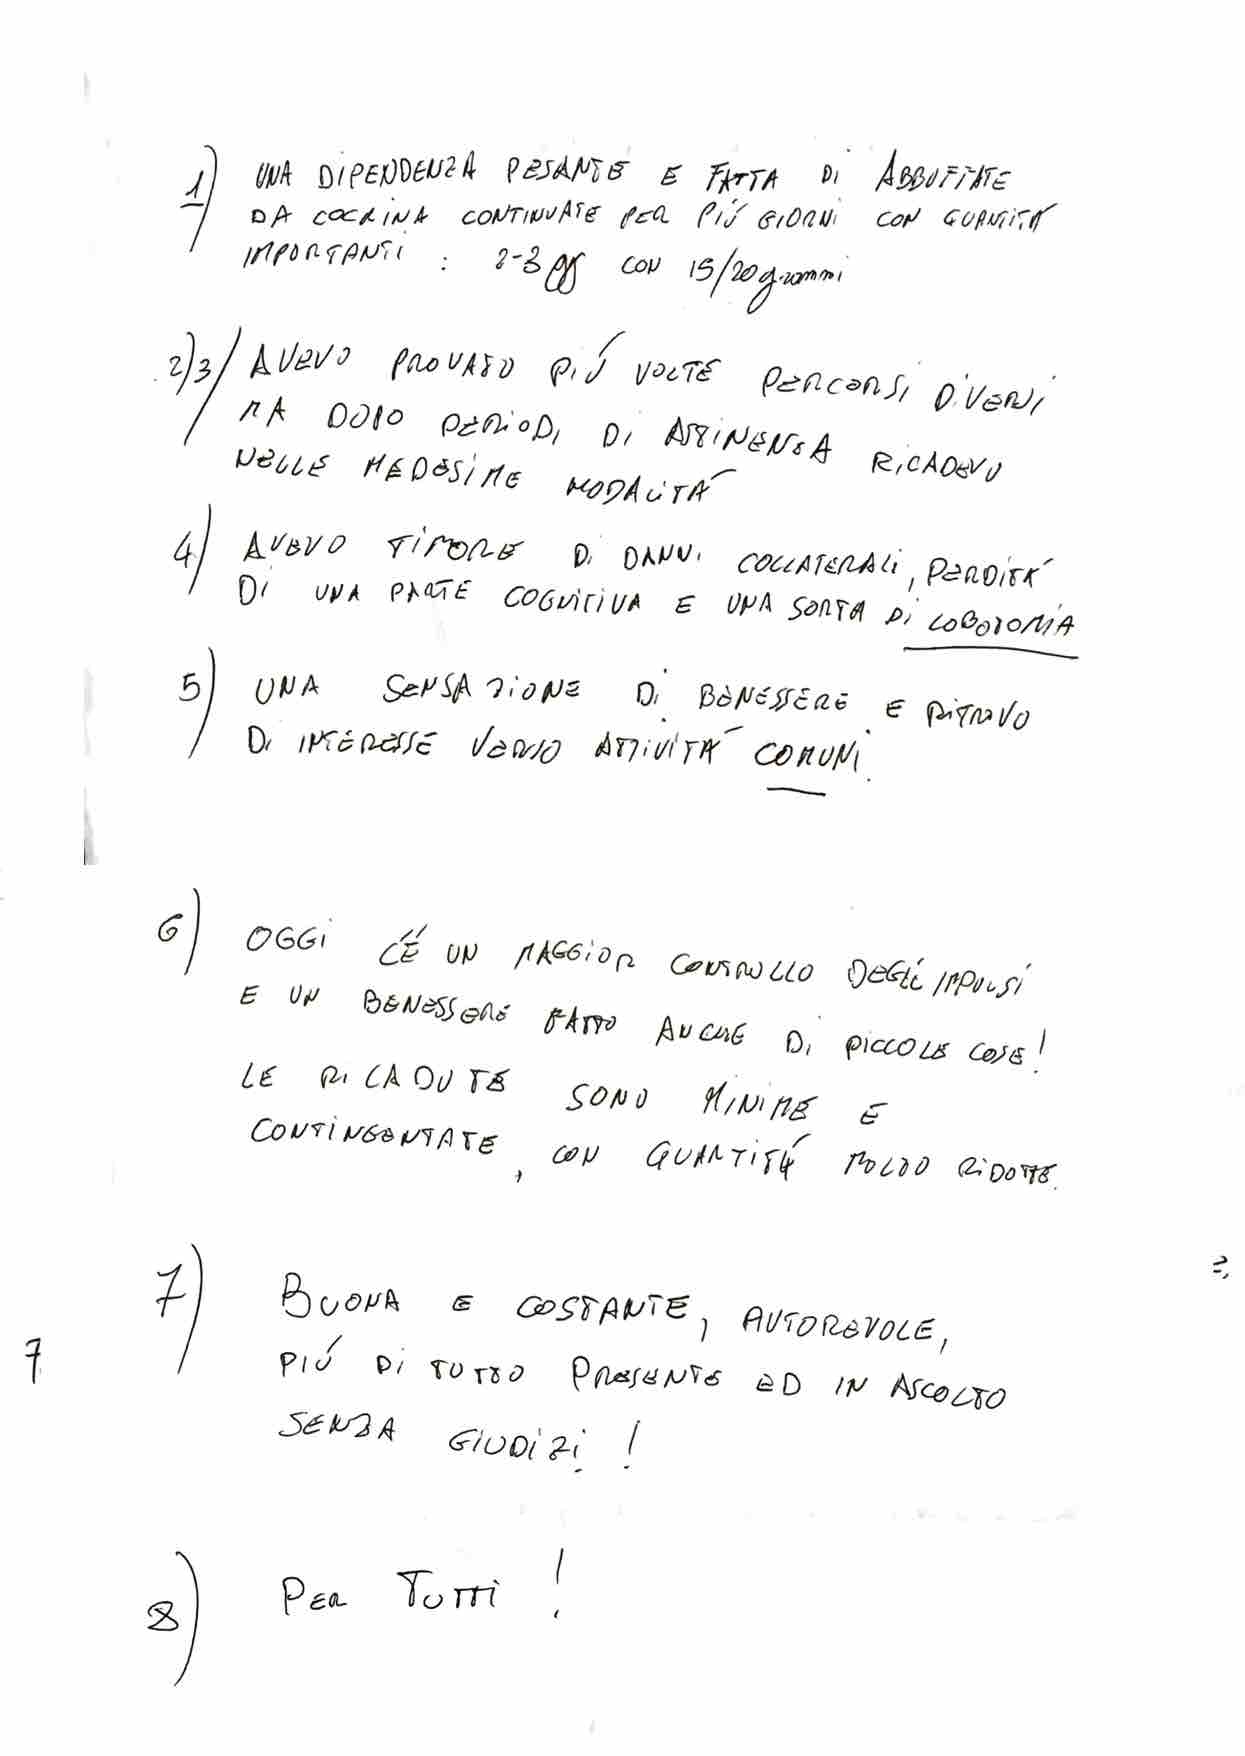 1) UNA DIPENDENZA PESANTE E FATTA DI ABBUFFATE
DA COCAINA CONTINUATE PER PIÚ GIORNI CON QUANTITÁ
IMPORTANTI : 2-3 gg CON 15/20 grammi
2)3) AVEVO PROVATO PIÚ VOLTE PERCORSI DIVERSI
MA DOPO PERIODI DI ASTINENZA RICADEVO
NELLE MEDESIME MODALITÁ
4) AVEVO TIMORE DI DANNI COLLATERALI, PERDITA
DI UNA PARTE COGNITIVA E UNA SORTA DI LOBOTOMIA
5) UNA SENSAZIONE DI BENESSERE E RITROVO
DI INTERESSE VERSO ATTIVITÁ COMUNI.
6) OGGI C'É UN MAGGIOR CONTROLLO DEGLI IMPULSI
E UN BENESSERE FATTO ANCHE DI PICCOLE COSE!
LE RICADUTE SONO MINIME E
CONTINGENTATE, CON QUANTITÁ MOLTO RIDOTTE.
7) BUONA E COSTANTE, AUTOREVOLE,
PIÚ DI TUTTO PRESENTE ED IN ASCOLTO
SENZA GIUDIZI!
7
8) PER TUTTI!